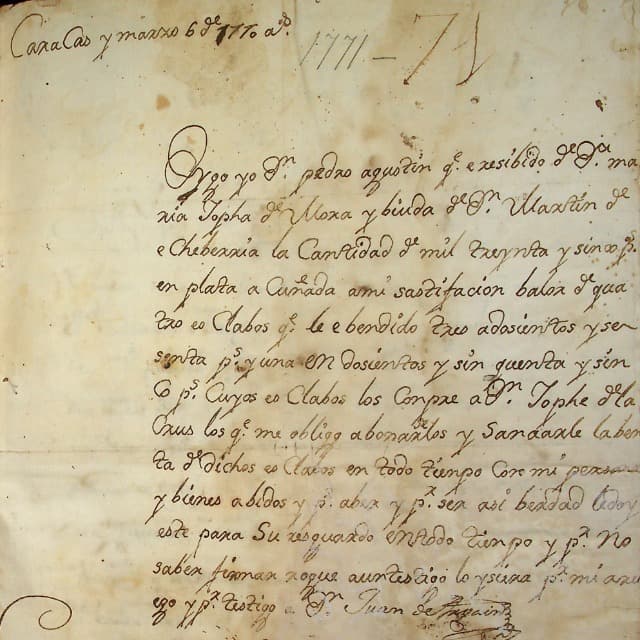 CaraCas y marzo 6 de 1770 as.
1771 - 71
Dygo yo Dn. pedro agustin q.e e resibido de D.a ma
ria Jopha de Mora y biuda de Dn. Martin de
e Cheberria la Cantidad de mil treynta y sinco ps.
en plata a Cuñada a mi sastifacion balor de qua
tro es Clabos q.e le e bendido tres a dosientos y se
senta ps. y una en dosientos y sin quenta y sin
Co ps. Cuyos es Clabos los Compre a Dn. Jophe de la
Crus los q.e me obligo a bonarlos y Sanearle la ben
ta de dichos es Clabos en todo tiempo Con mi persona
y bienes abidos y p.r aber y p.r ser asi berdad le doy
este para Su resguardo en todo tiempo y p.r No
saber firmar rogue a un testigo lo ysiera p.r mi a rru
ego y p.r testigo Dn. Juan de